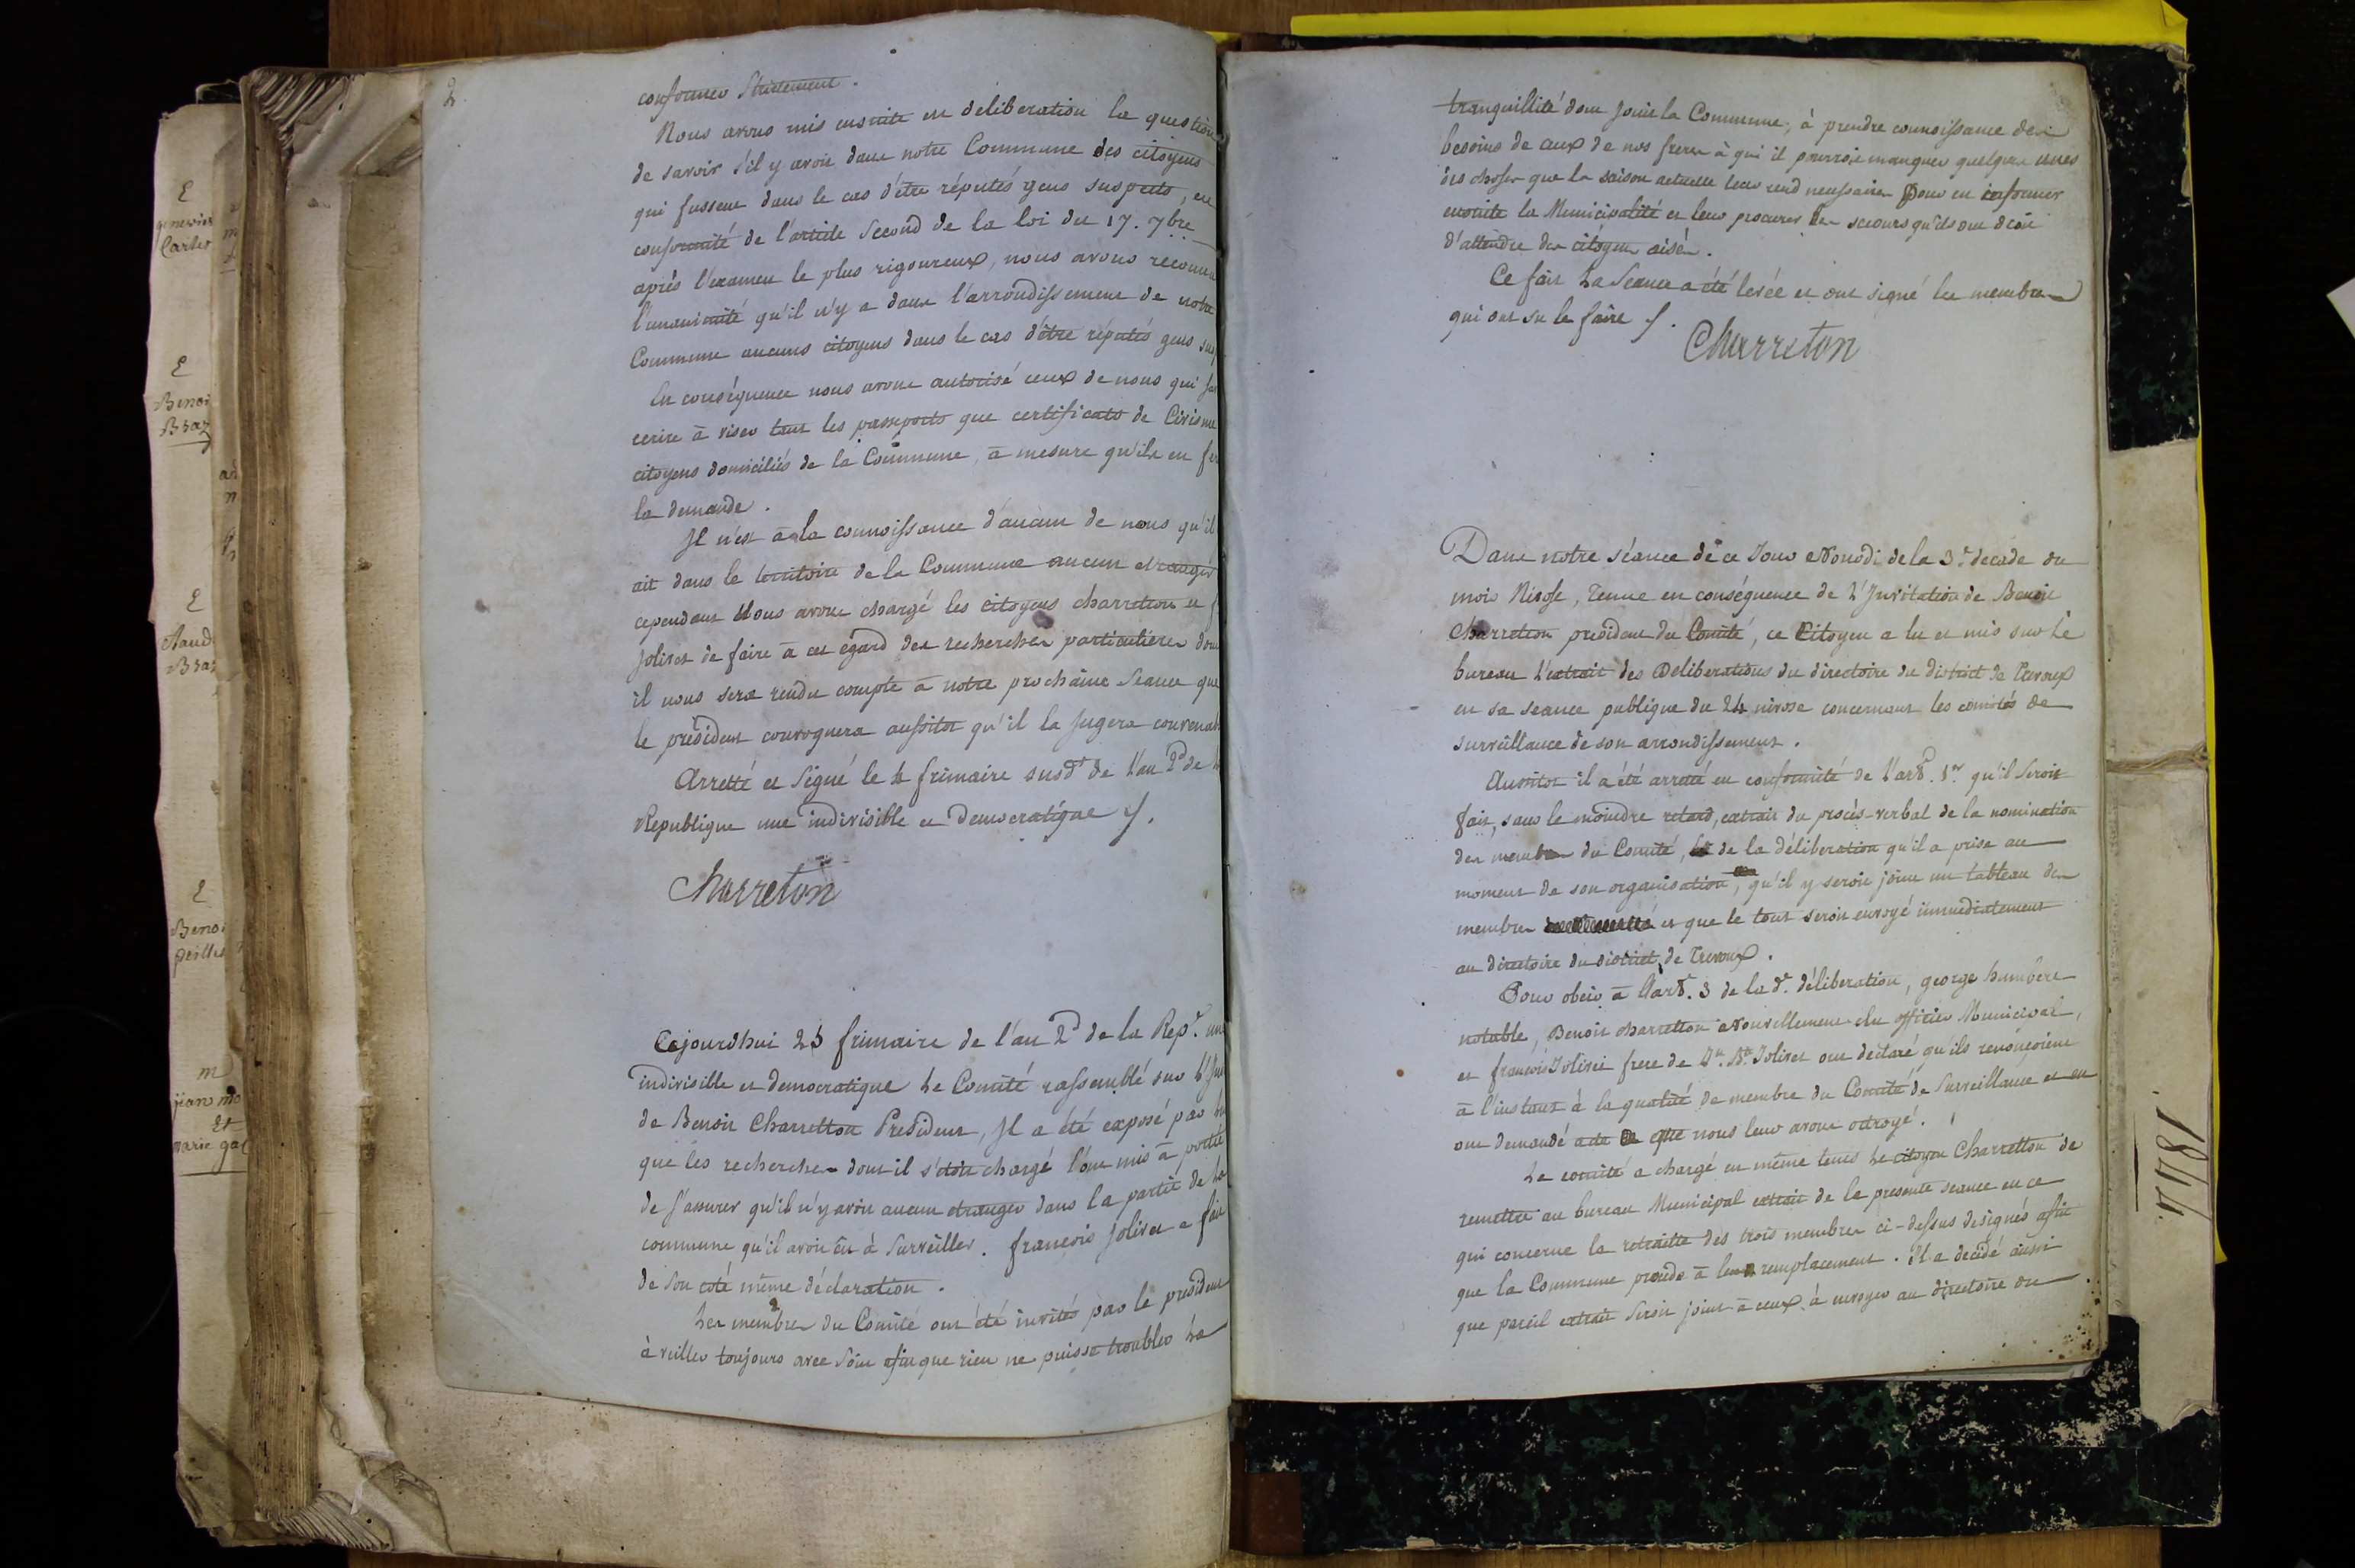 2
conformer strictement.
Nous avons mis ensuite en deliberation la question
de savoir s'il y avoit dans notre Commune des citoyens
qui fussent dans le cas d'être réputés gens suspects, en
conformité de l'article second de la loi du 17. 7bre
après l'examen le plus rigoureux, nous avons reconnu
l'unanimité qu'il n'y a dans l'arrondissement de notre
Commune aucuns citoyens dans le cas d'être réputés gens sus
En conséquence nous avons autorisé ceux de nous qui
ecrire à viser tant les passeports que certificats de Civisme
citoyens domiciliés de la Commune, à mesure qu'ils en fe
la demande.
Il n'est à la connoissance d'aucun de nous qu'il
ait dans le territoire de la Commune aucun etranger
cependant Nous avons chargé les citoyens charretton et f
Jolivet de faire à cet égard des recherches particulières dont
il nous sera rendu compte à notre prochaine séance que
le président convoquera aussitot qu'il la jugera convenab
Arretté et signé le 4 frimaire susdt de l'an 2d de l
Republique une indivisible et democratique ./.
Charreton
Cejourdhui 25 frimaire de l'an 2d de la Repe. une
indivisible et democratique Le Comité rassemblé sur l'In
de Benoit Charretton President, Il a été exposé par
que les recherches dont il s'étoit chargé l'ont mis à portée
de s'assurer qu'il n'y avoit aucun etranger dans la partie de la
commune qu'il avoit eu à surveiller. françois Jolivet a fait
de son coté même déclaration.
Les membres du Comité ont été invités par le president
à veiller toujours avec soin afin que rien ne puisse troubler La
tranquillité dont jouit la Commune, à prendre connoissance des
besoins de ceux de nos freres à qui il pourroit manquer quelques unes
des choses que la saison actuelle leur rend necessaires pour en informer
ensuite la Municipalité et leur procurer les secours qu'ils ont droit
d'attendre des citoyens aisés.
Ce fait La Séance a été levée et ont signé les membres
qui ont su le faire ./.
Charreton
Dans notre séance de ce Jour Nonodi de la 3e. decade du
mois Nivose, Tenue en conséquence de L'Invitation de Benoit
Charretton president du Comité, ce Citoyen a lu et mis sur le
bureau L'extrait des Deliberations du directoire du district de Trevoux
en sa seance publique du 24 nivose concernant les comités de
surveillance de son arrondissement.
Aussitot il a été arretté en conformité de l'art. 1er qu'il seroit
fait, sans le moindre retard, extrait du procès-verbal de la nomination
des membres du Comité, de la déliberation qu'il a prise au
moment de son organisation, qu'il y seroit joint un tableau des
membres et que le tout seroit envoyé immediatement
au directoire du district de Trevoux.
Pour obeir à l'art. 3 de la de. déliberation, george humbert
notable, Benoit charretton Nouvellement élu officier Municipal,
et françois Jolivet frere de Jolivet ont declaré qu'ils renonçoient
à l'instant à la qualité de membre du Comité de Surveillance et en
ont demandé acte que nous leur avons octroyé.
Le comité a chargé en même tems Le citoyen Charretton de
remettre au bureau Municipal extrait de la presente seance en ce
qui concerne la retraitte des trois membres ci-dessus designés afin
que la Commune procede à leur remplacement. Il a decidé aussi
que pareil extrait seroit joint à ceux à envoyer au directoire du
E
Carles
E
Benoi
Braz
E
Claud
Braz
E
Benoi
m
jean
Et
marie